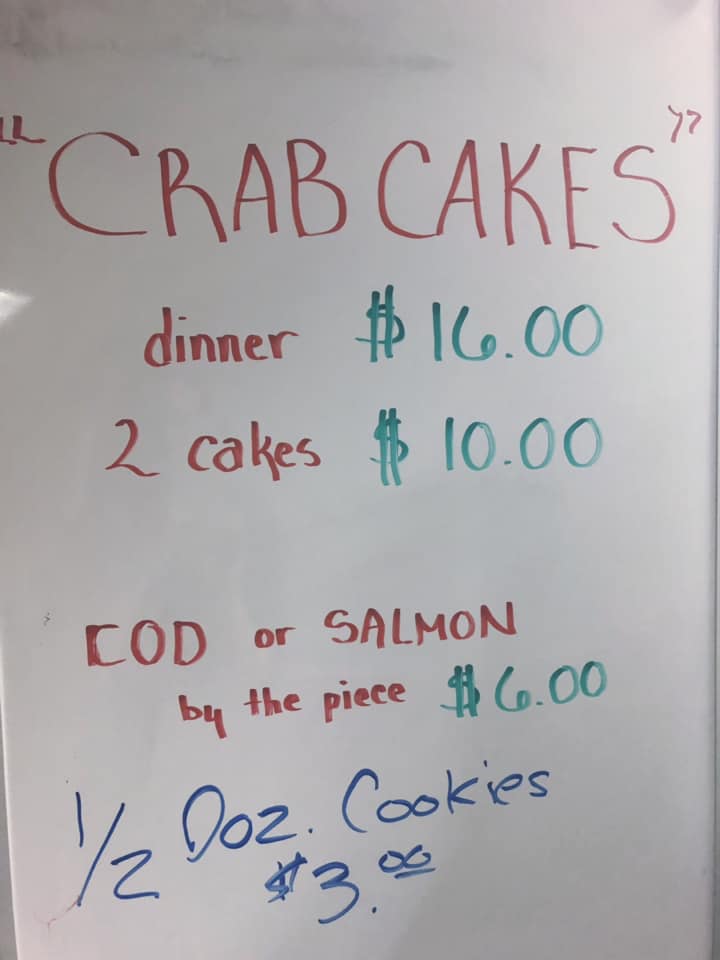 "CRAB CAKES"
dinner $16.00
2 cakes $10.00
COD or SALMON
by the piece $6.00
1/2 Doz. Cookies
$3.00